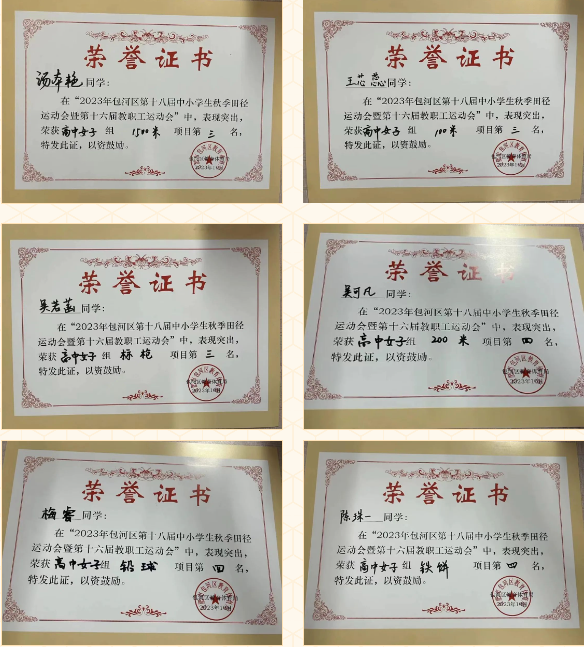 荣誉证书
汤本艳同学：
在“2023年包河区第十八届中小学生秋季田径
运动会暨第十六届教职工运动会”中，表现突出，
荣获高中女子组 1500米 项目第三名，
特发此证，以资鼓励。
荣誉证书
王芯蕊同学：
在“2023年包河区第十八届中小学生秋季田径
运动会暨第十六届教职工运动会”中，表现突出，
荣获高中女子组 100米 项目第三名，
特发此证，以资鼓励。
荣誉证书
吴若菡同学：
在“2023年包河区第十八届中小学生秋季田径
运动会暨第十六届教职工运动会”中，表现突出，
荣获高中女子组 标枪 项目第三名，
特发此证，以资鼓励。
荣誉证书
吴可凡同学：
在“2023年包河区第十八届中小学生秋季田径
运动会暨第十六届教职工运动会”中，表现突出，
荣获高中女子组 200米 项目第四名，
特发此证，以资鼓励。
荣誉证书
梅睿同学：
在“2023年包河区第十八届中小学生秋季田径
运动会暨第十六届教职工运动会”中，表现突出，
荣获高中女子组 铅球 项目第四名，
特发此证，以资鼓励。
荣誉证书
陈珠一同学：
在“2023年包河区第十八届中小学生秋季田径
运动会暨第十六届教职工运动会”中，表现突出，
荣获高中女子组 铁饼 项目第四名，
特发此证，以资鼓励。